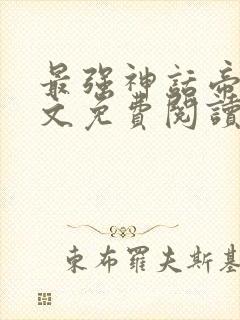 最強神話帝
文免費閱讀
東布羅夫斯基